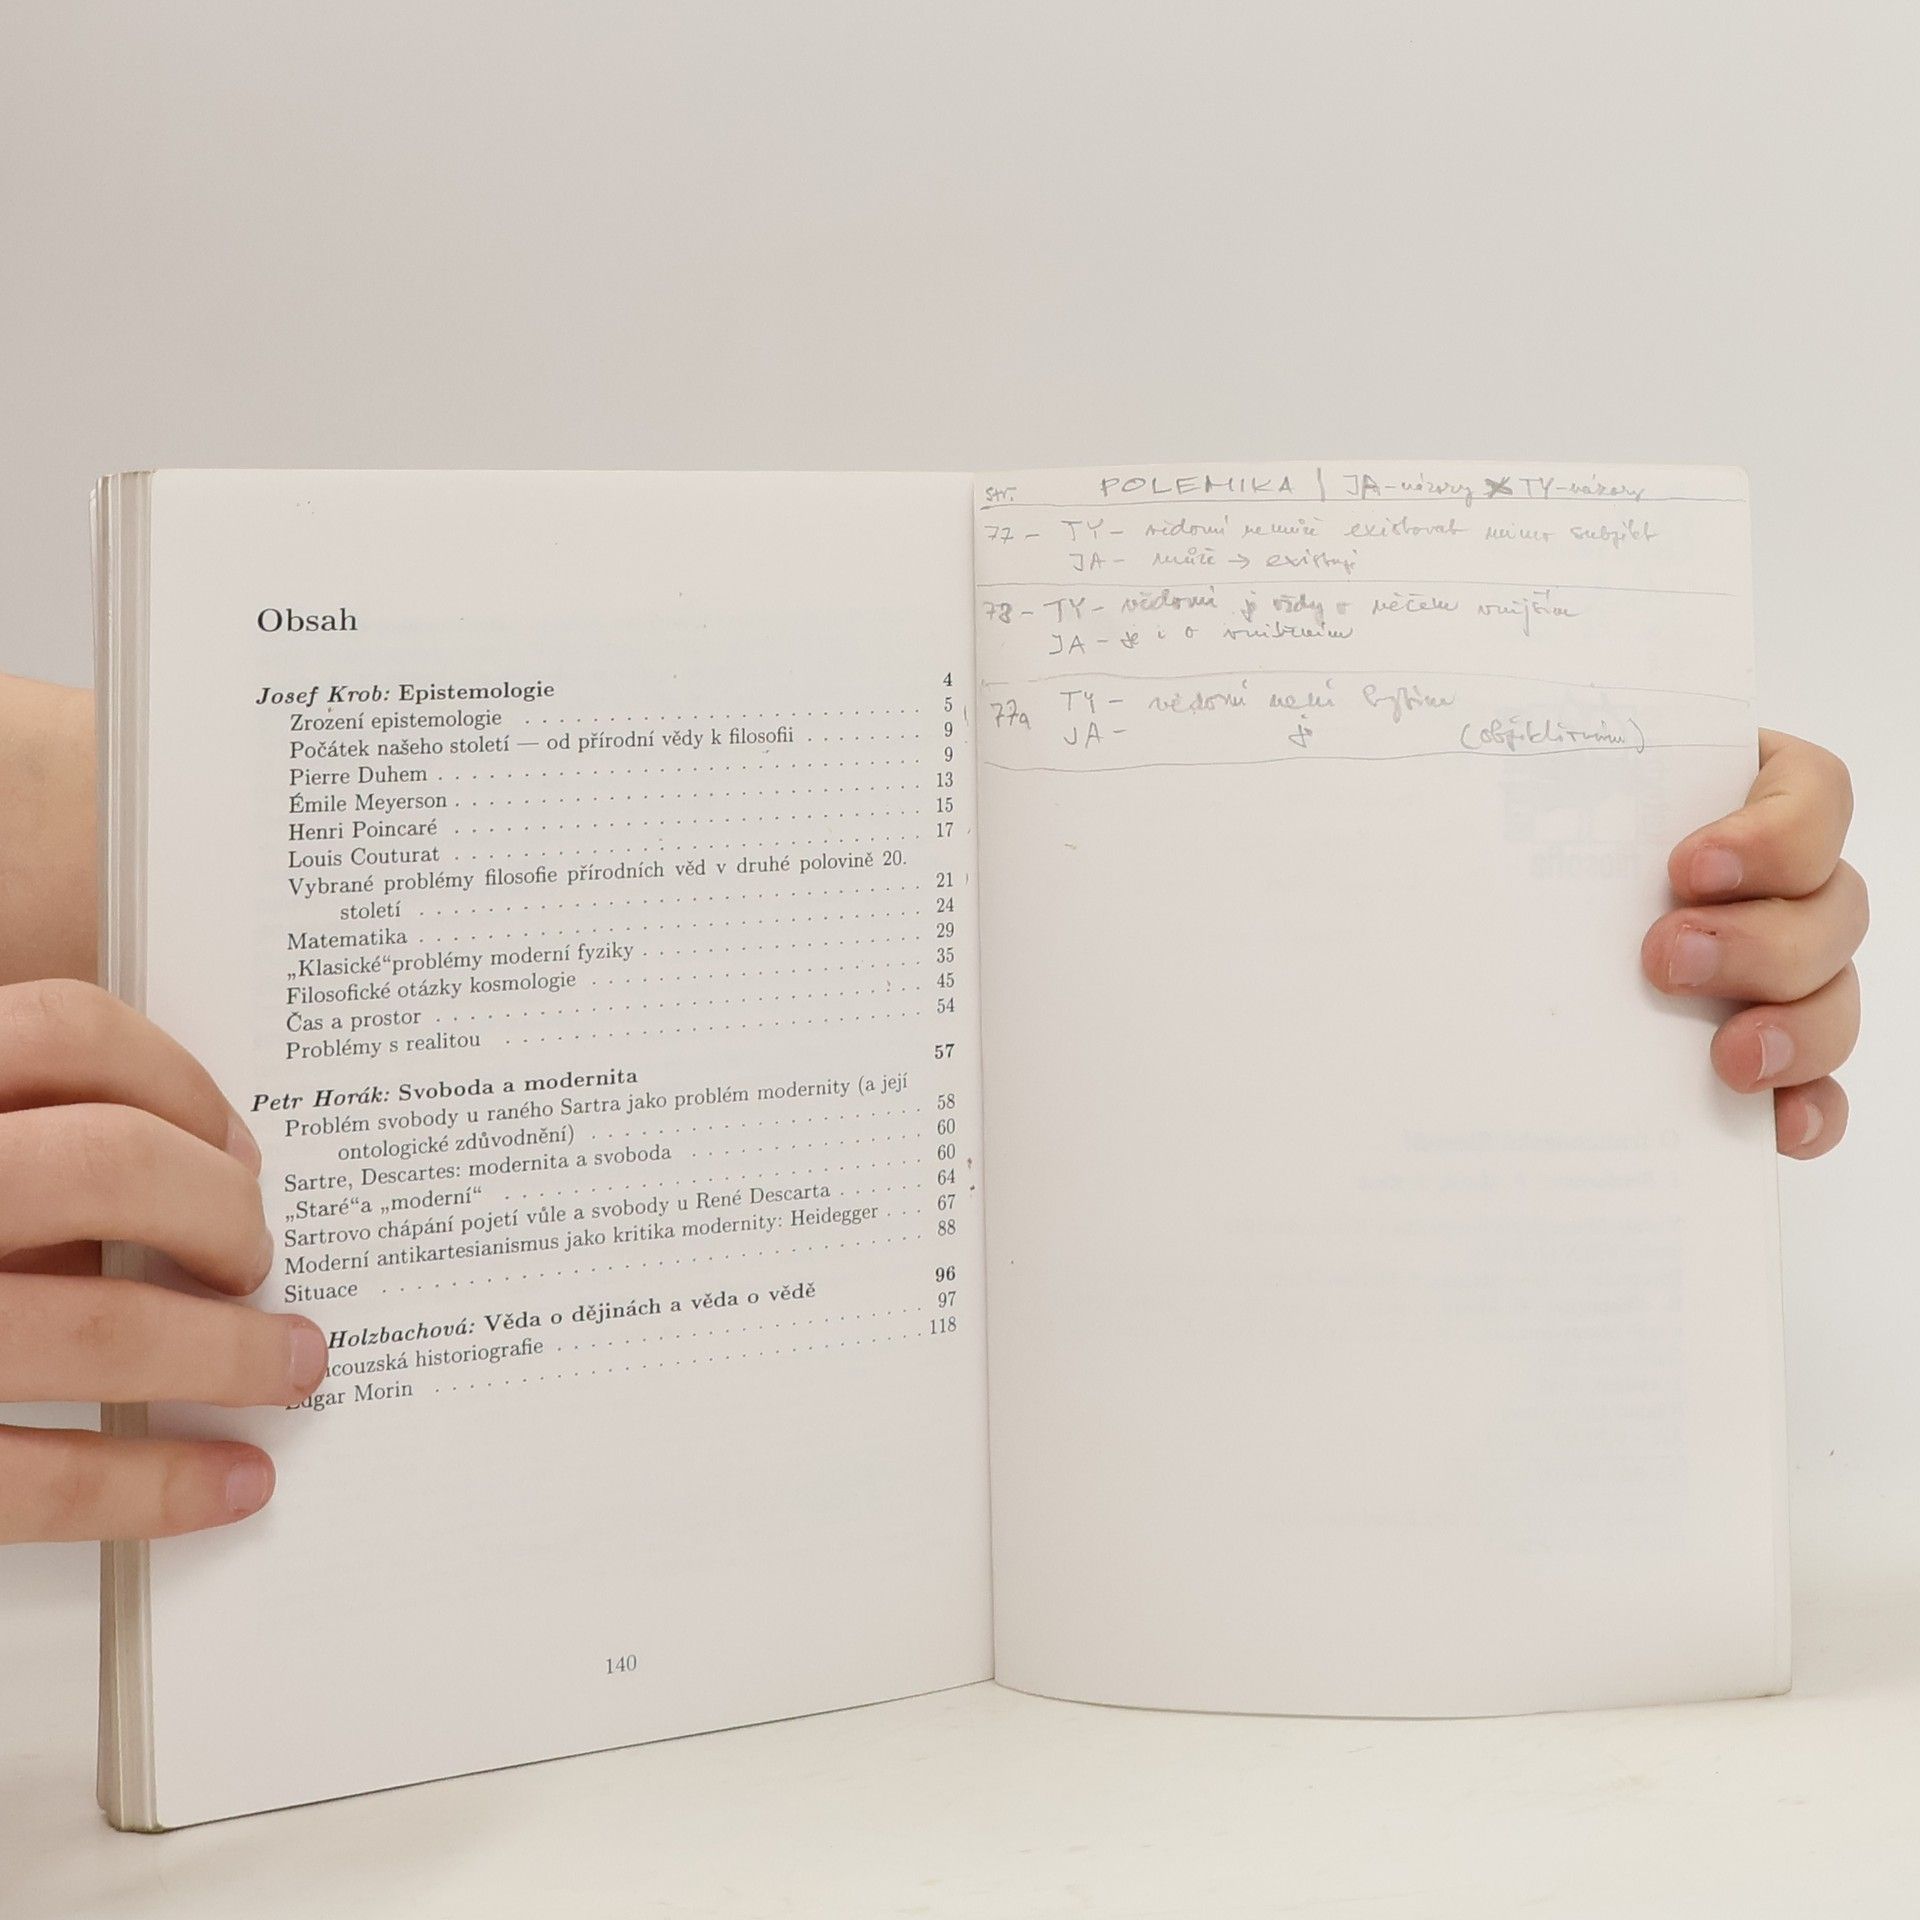 Obsah
Josef Krob: Epistemologie 4
Zrození epistemologie 5
Počátek našeho století — od přírodní vědy k filosofii 9
Pierre Duhem 9
Émile Meyerson 13
Henri Poincaré 15
Louis Couturat 17
Vybrané problémy filosofie přírodních věd v druhé polovině 20.
století 21
Matematika 24
„Klasické“problémy moderní fyziky 29
Filosofické otázky kosmologie 35
Čas a prostor 45
Problémy s realitou 54
Petr Horák: Svoboda a modernita 57
Problém svobody u raného Sartra jako problém modernity (a její
ontologické zdůvodnění) 58
Sartre, Descartes: modernita a svoboda 60
„Staré“a „moderní“ 60
Sartrovo chápání pojetí vůle a svobody u René Descarta 64
Moderní antikartesianismus jako kritika modernity: Heidegger 67
Situace 88
Holzbachová: Věda o dějinách a věda o vědě 96
couzská historiografie 97
Edgar Morin 118
140
str. POLEMIKA | JA-názory X TY-názory
77 - TY - vědomí nemůže existovat mimo subjekt
JA - může → existuje
78 - TY - vědomí je vždy o něčem vnějším
JA - je i o vnitřním
77a TY - vědomí není bytím
JA - je (objektivním)